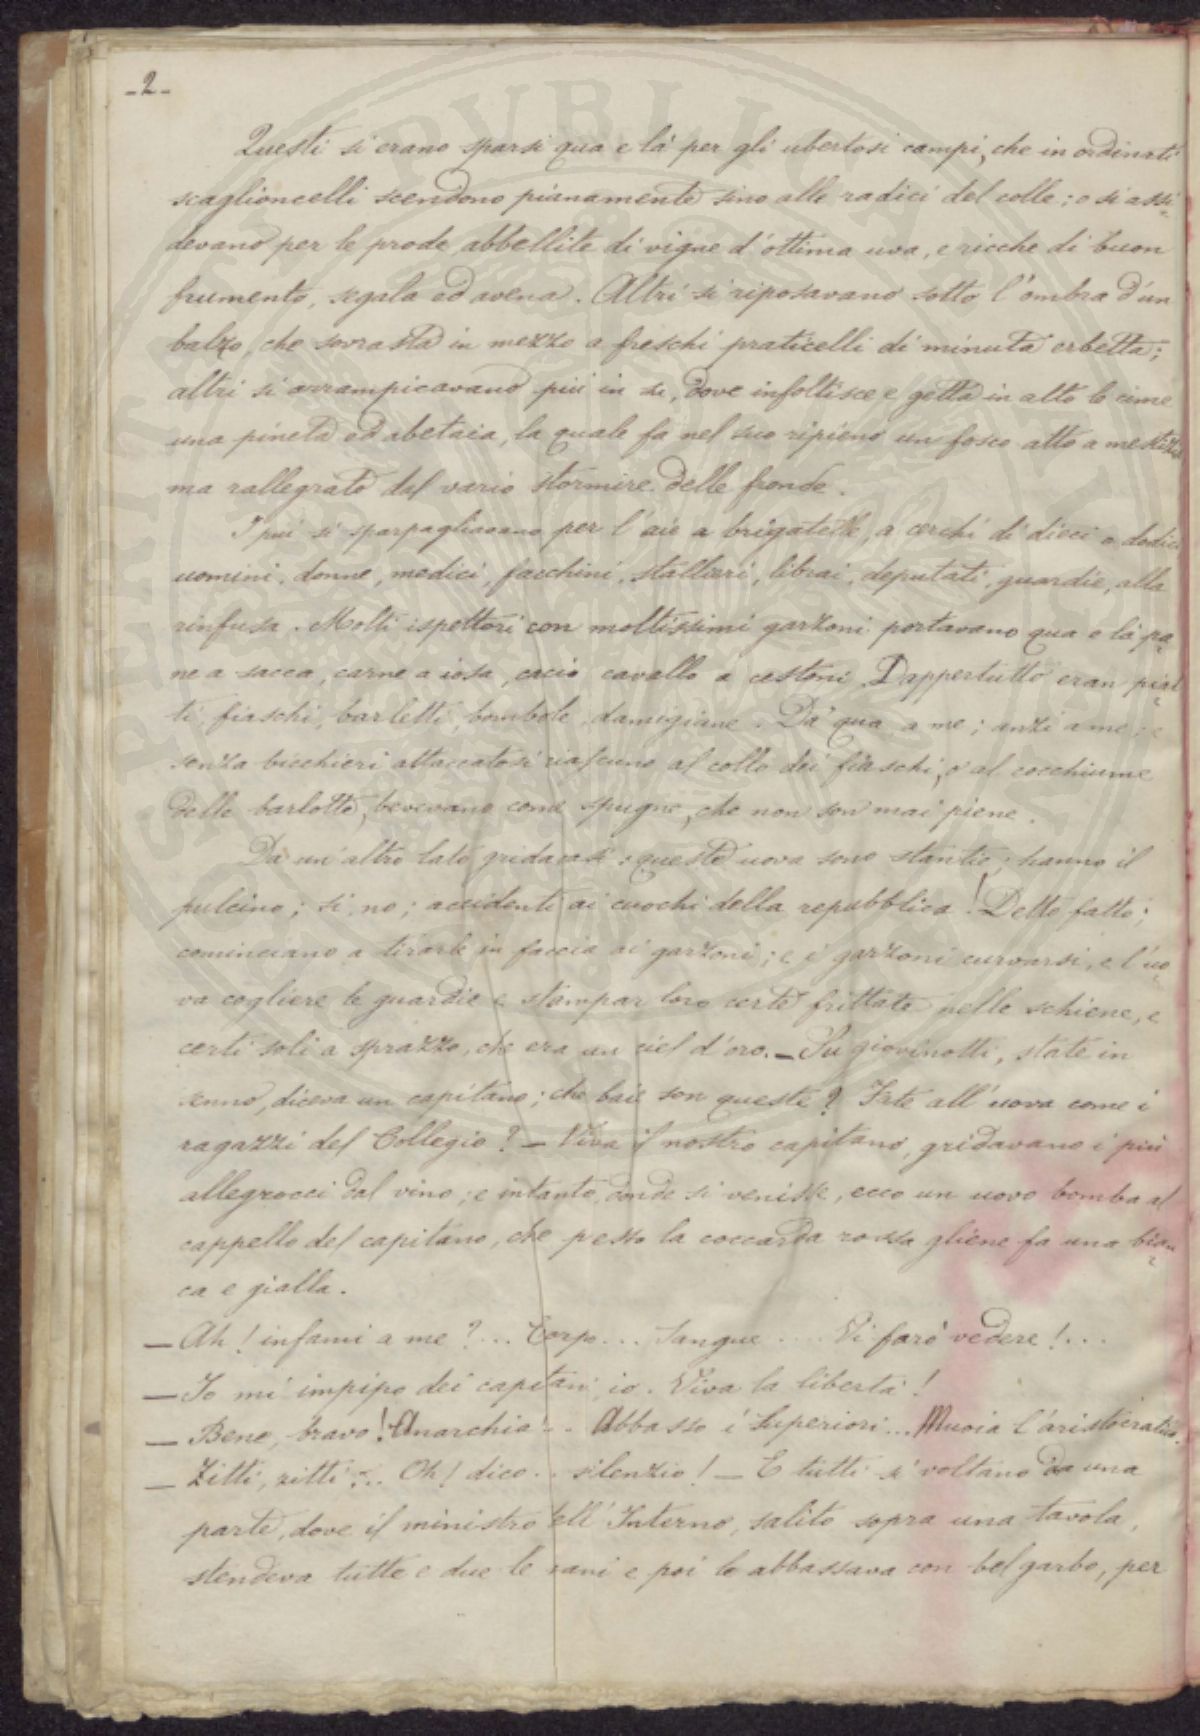 -2-
Questi si erano sparsi qua e là per gli ubertosi campi, che in ordinati
scaglioncelli scendono pianamente sino alle radici del colle; o si assi-
devano per le prode abbellite di vigne d'ottima uva, e ricche di buon
frumento, segala ed avena. Altri si riposavano sotto l'ombra d'un
balzo, che sovrasta in mezzo a freschi praticelli di minuta erbetta;
altri si arrampicavano più in su, dove infoltisce e getta in alto le cime
una pineta ed abetaia, la quale fa nel suo ripieno un fosco atto a mestizia
ma rallegrato dal vario stormire delle fronde.
I più si sparpagliavano per l'aie a brigatelle, a cerchi di dieci o dodici
uomini, donne, medici, facchini, stallieri, librai, deputati, guardie, alla
rinfusa. Molti ispettori con moltissimi garzoni portavano qua e là pa-
ne a sacca, carne a iosa, cacio cavallo a cestoni. Dappertutto eran piat-
ti, fiaschi, barletti, bombole, damigiane. Da' qua, a me; anzi a me; e
senza bicchieri attaccatosi ciascuno al collo dei fiaschi, o al cocchiume
delle barlotte, bevevano come spugne, che non son mai piene.
Da un altro lato gridavasi: queste uova sono stantie; hanno il
pulcino; si, no; accidenti ai cuochi della repubblica! Detto fatto;
cominciano a tirarle in faccia ai garzoni; e i garzoni curvarsi, e l'uo-
va cogliere le guardie e stampar loro certe frittate nelle schiene, e
certi soli a sprazzo, che era un ciel d'oro. — Su giovinotti, state in
senno, diceva un capitano; che baie son queste? Fate all'uova come i
ragazzi del Collegio? — Viva il nostro capitano, gridavano i più
allegrocci dal vino; e intanto, donde si venisse, ecco un uovo bomba al
cappello del capitano, che pesto la coccarda rossa gliene fa una bian-
ca e gialla.
— Ah! infami a me?... Corpo... Sangue... Vi farò vedere!...
— Io mi impipo dei capitani, io. Viva la libertà!
— Bene, bravo! Anarchia!... Abbasso i Superiori... Muoia l'aristocratico.
— Zitti, zitti... Oh! dico... silenzio! — E tutti si voltano da una
parte, dove il ministro dell'Interno, salito sopra una tavola,
stendeva tutte e due le mani e poi le abbassava con bel garbo, per